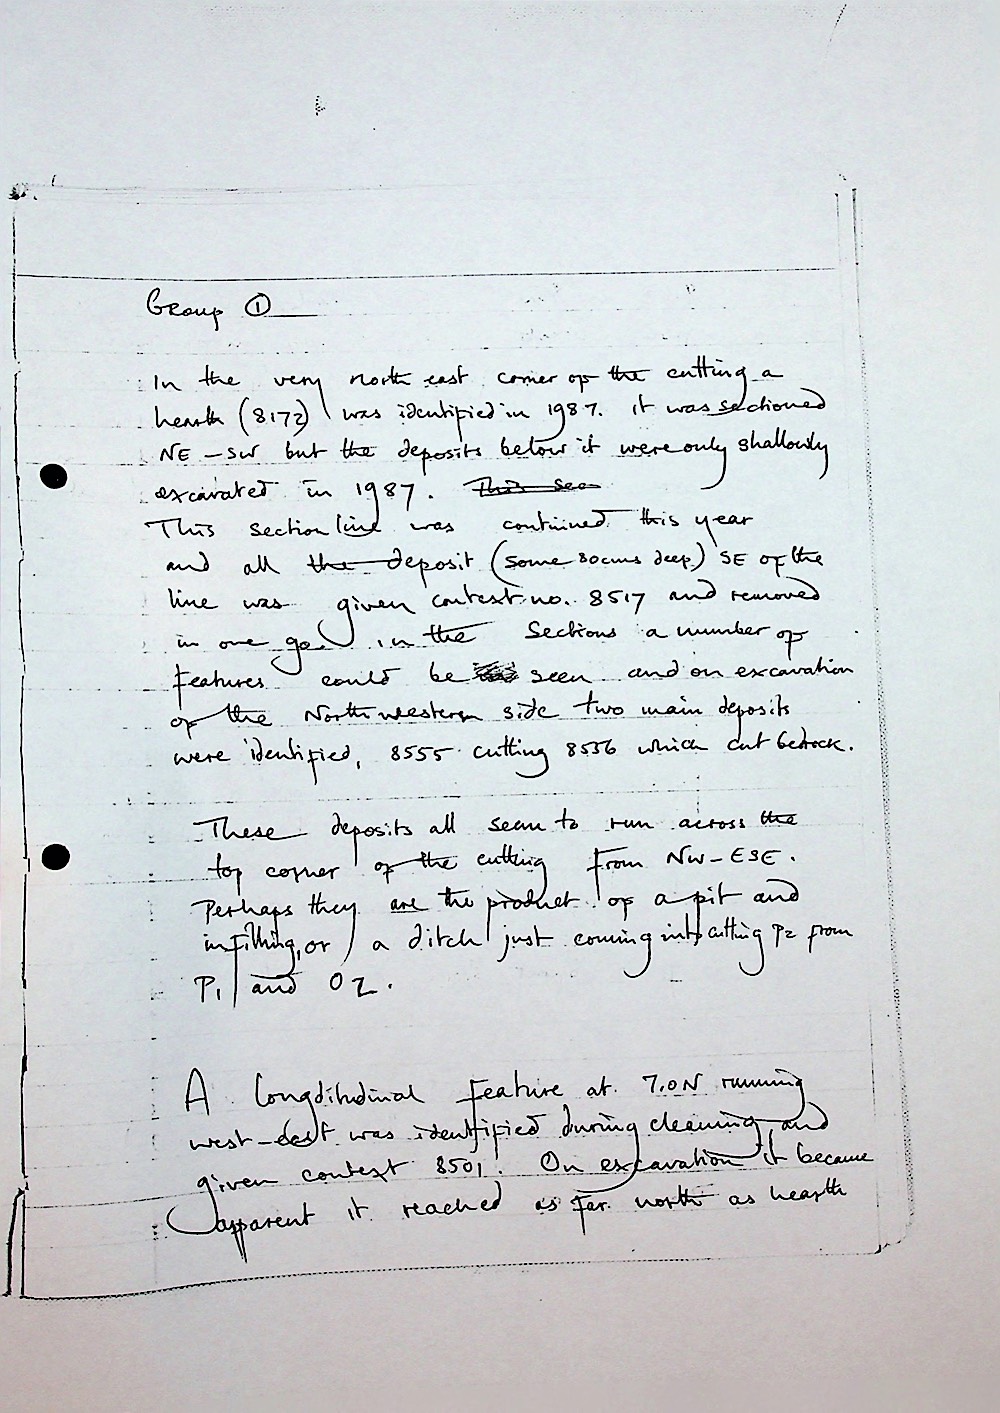 Group ①
In the very north east corner of the cutting a
hearth (8172) was identified in 1987. it was sectioned
NE - SW but the deposits below it were only shallowly
excavated in 1987. This sec
This section line was continued this year
and all the deposit (some 80cms deep) SE of the
line was given context no. 8517 and removed
in one go. in the Sections a number of
features could be seen and on excavation
of the North western side two main deposits
were identified, 8555 cutting 8556 which cut bedrock.
These deposits all seem to run across the
top corner of the cutting from NW - ESE.
Perhaps they are the product of a pit and
infilling, or a ditch just coming into cutting P2 from
P1 and O2.
A longditudinal feature at 7.0N running
west - east was identified during cleaning and
given context 8501. On excavation it became
apparent it reached as far north as hearth